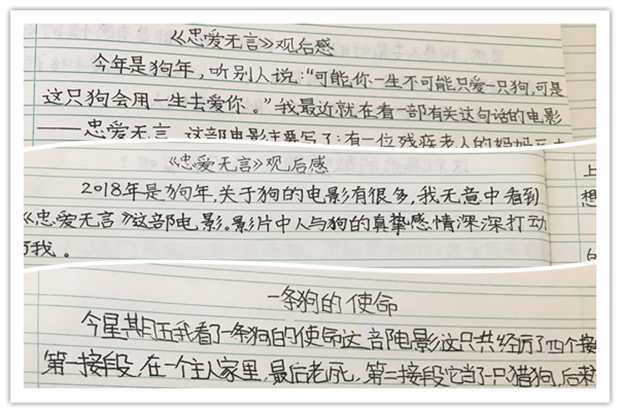 《忠爱无言》观后感
今年是狗年，听别人说："可能你一生不可能只爱一只狗，可是
这只狗会用一生去爱你。"我最近就在看一部有关这句话的电影
——忠爱无言，这部电影主要写了：有一位残疾老人的妈妈
《忠爱无言》观后感
2018年是狗年，关于狗的电影有很多，我无意中看到
《忠爱无言》这部电影。影片中人与狗的真挚感情深深打动
了我。
上
想
一条狗的使命
今星期五我看了一条狗的使命这部电影这只共经历了四个接
第一接段，在一个主人家里，最后老死，第二接段它当了一只猎狗，后来